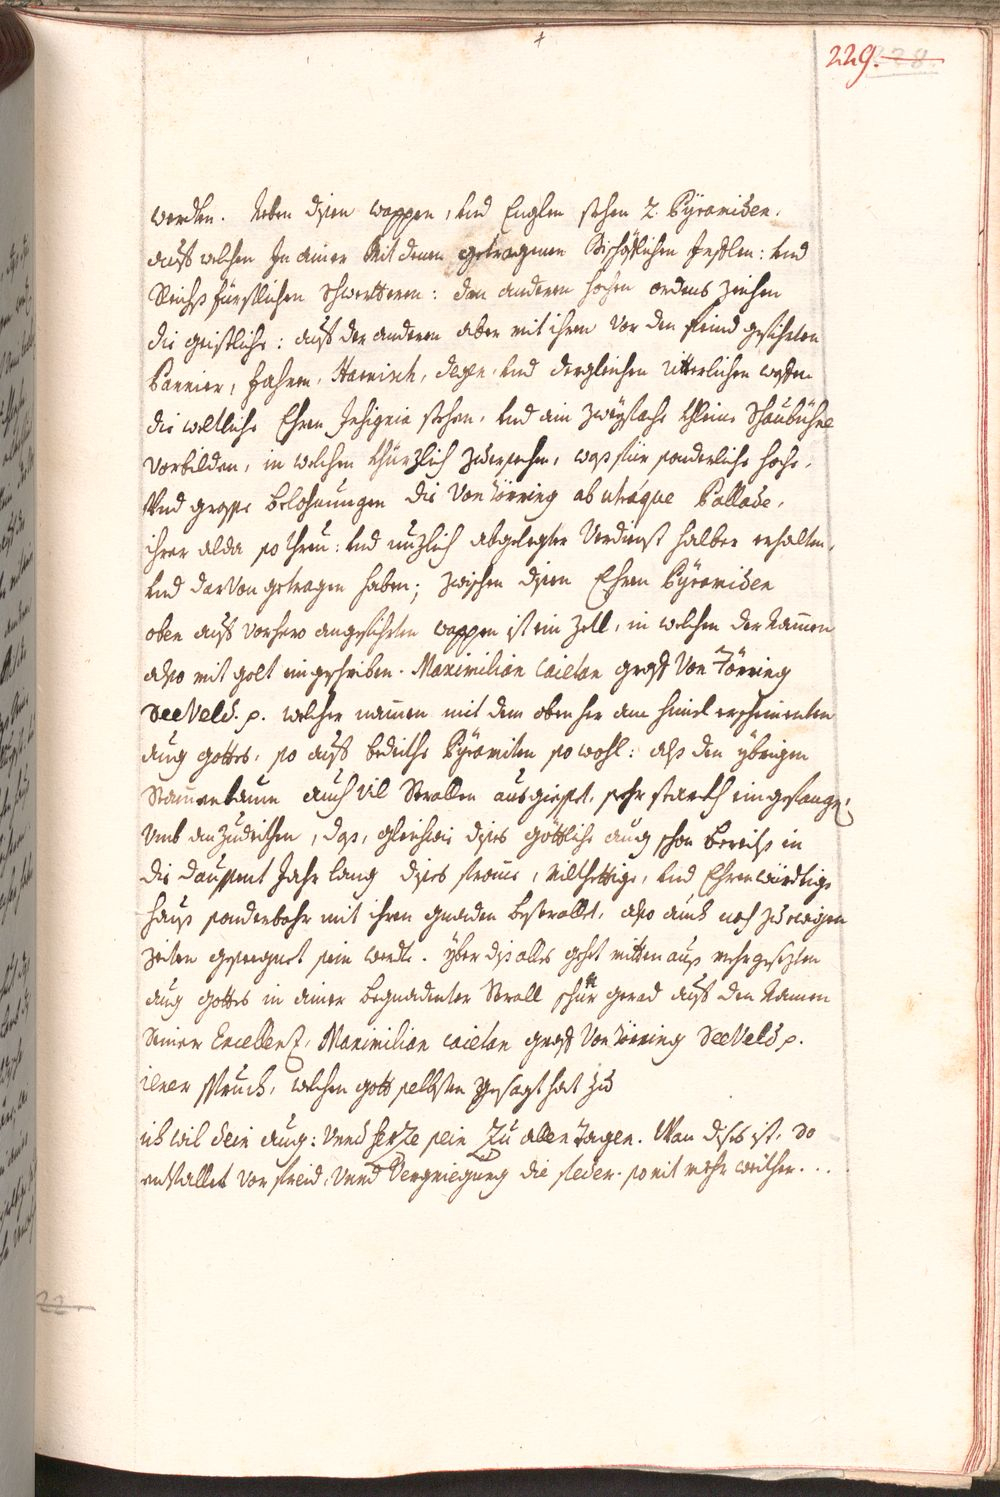 229. 228.
werden. Neben disen wappen, und Englen stehen 2. Pÿramiden.
auß welchen In ainer Mit denen getragenen Bischöflichen Insflen: und
Reichß fürstlichen Schwertteren: den anderen hochen ordens zeichen
die geistliche: auß der anderen aber mit ihren vor den feind gefiehrten
Pannier, fahnen, Harnisch, degen, und dergleichen ritterlichen waffen
die weltliche Ehren Insignia stehen, und ain zweÿfache kleine Schaubühne
vorbilden, in welchen khürzlich zuersechen, waß für sonderliche hoche,
Und grosse belohnungen die von Törring ab utráque Pallade,
ihrer alda so threu: und nuzlich abgelegter Verdienst halber erhalten,
und darvon getragen haben; zwischen disen Ehren Pÿramiden
oben auß vorhero angefiehrten wappen ist ein Zell, in welchen der Namen
also mit golt eingeschriben. Maximilian Caietan graff von Törring
Seeveld. p. welcher namen mit dem oben her am himel erscheinenten
aug gottes, so auß bedeithe Pÿramiten sowohl: alß den ÿbrigen
Stammenbaum auch vil Strallen ausgiesset, sehr starkh eingefange,
Umb anzudeithen, daß, gleichwie dises göttliche aug schon bereiths in
die daussent Jahr lang dises fromme, und Ehrenwürdtige
hauß sonderbahr mit ihren gnaden bestrallet, also auch noch zu ewigen
zeiten gesegnet sein werde. ÿber diß alles geht mitten auß mehr gesezten
aug gottes in ainer begnadenter Strall gerad auß den Namen
Seiner Excellenz, Maximilian Caietan graff von Törring Seeveld p.
iener spruch, welchen gott selbsten gesagt hat zu
ich wil dein aug: vnnd herze sein Zu allen tagen. Wan dises ist, so
entfallet vor freid, vnnd Vergniegung die feder. somit mehr weither....
22.